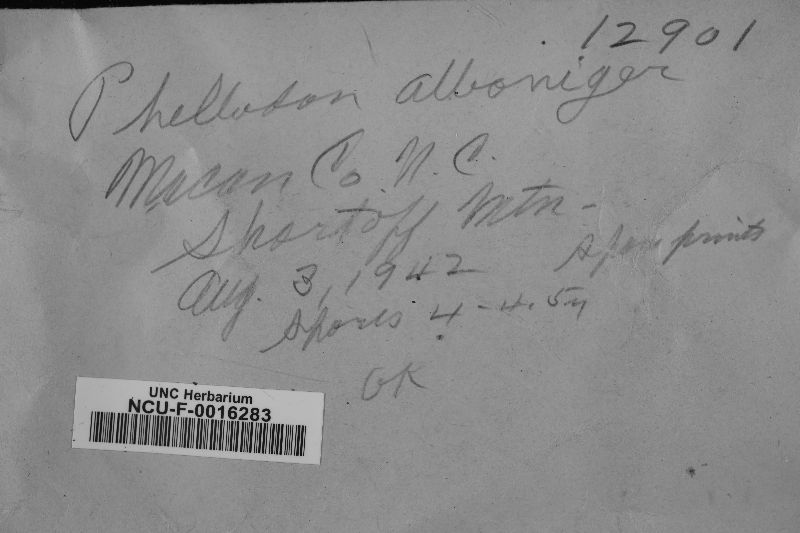 12901
Phellodon alboniger
Macon Co. N. C.
Shortoff Mtn-
Aug. 3, 1942 Spore prints
Spores 4-4.5µ
OK
UNC Herbarium
NCU-F-0016283